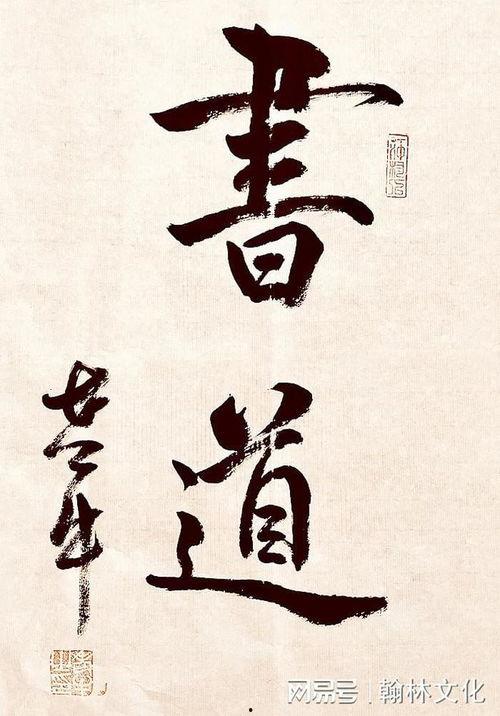 書道
网易号 | 翰林文化